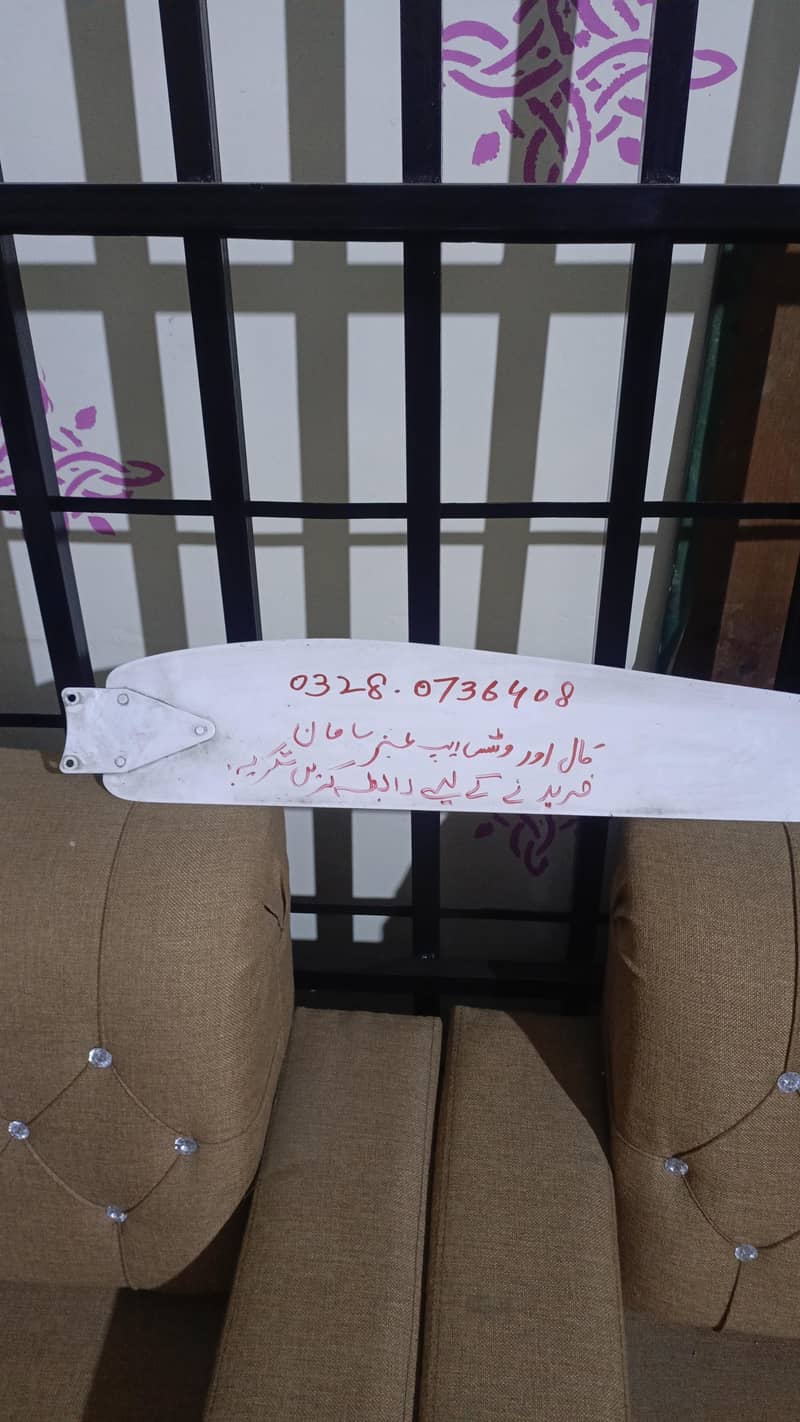 0328.0736408
کال اور وٹس ایپ نمبر سامان
خریدنے کے لیے رابطہ کریں شکریہ: